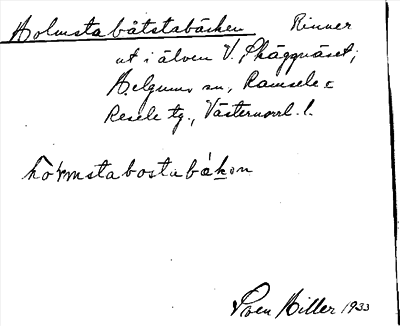 Holmstabåtstabäcken Rinner
ut i älven V. Skäggnäset;
Helgums sn, Ramsele o
Resele tg., Västernorrl. l.
hòrmstabostabák̲on
Sven Hiller 1933